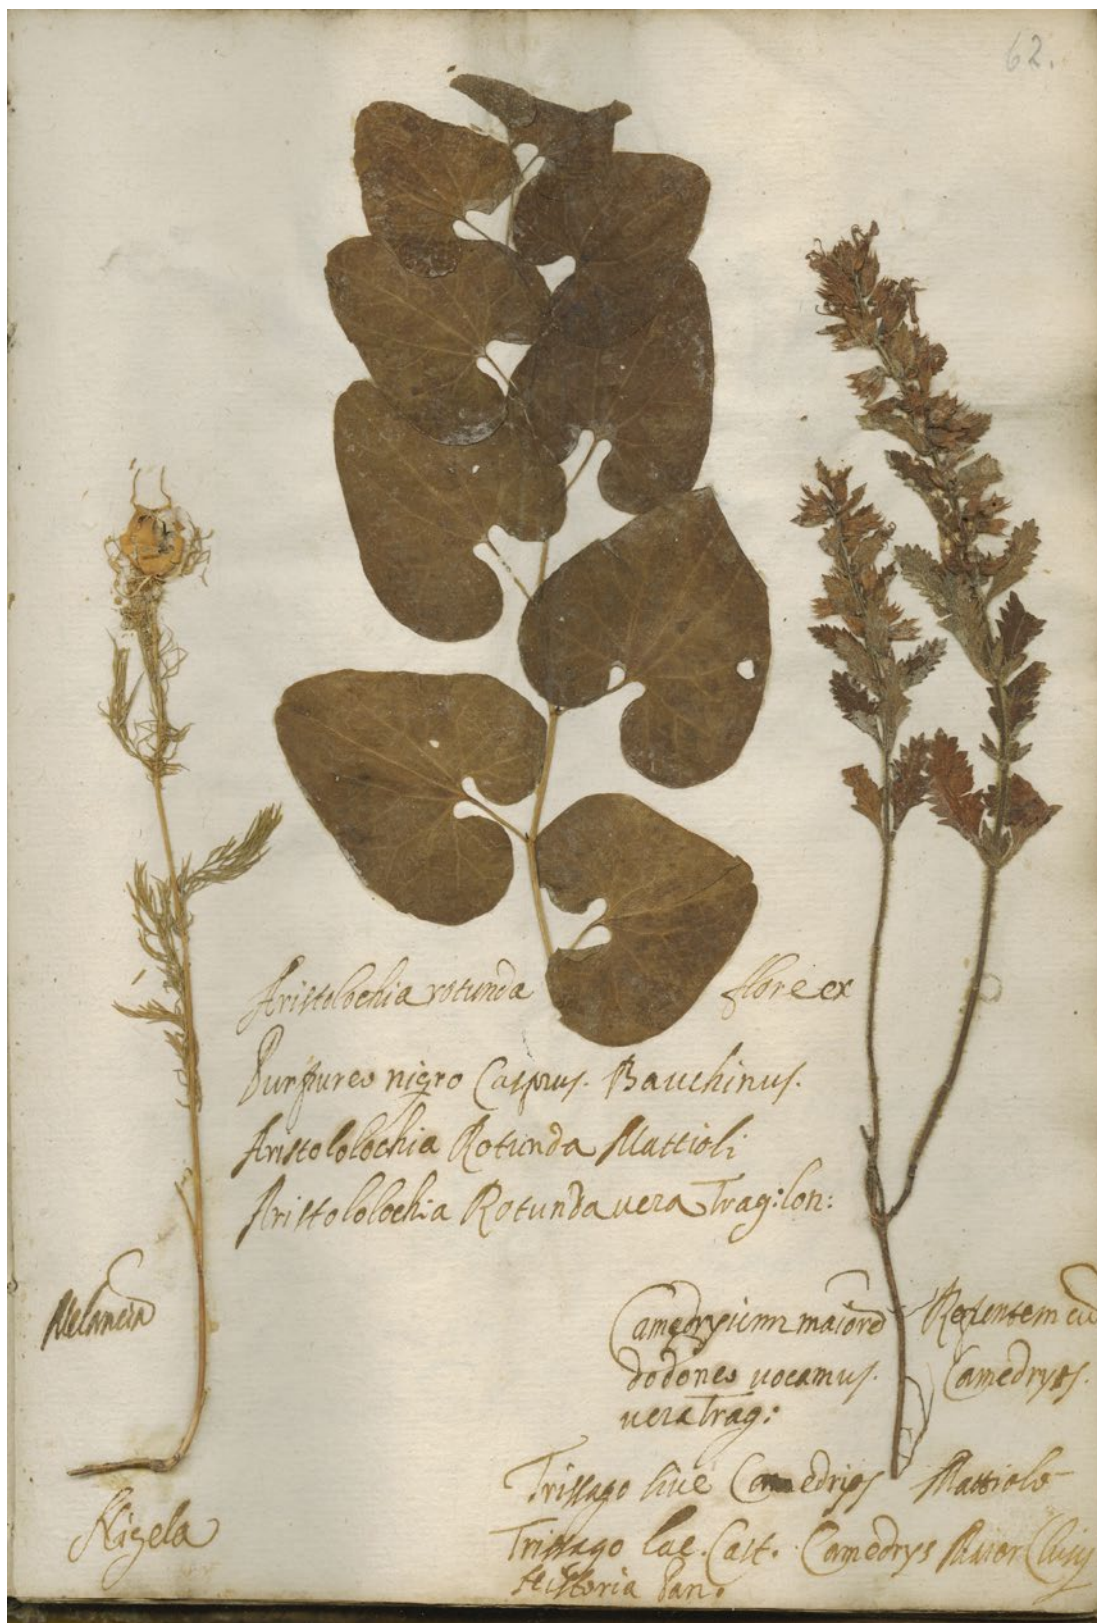 62.
Aristolochia rotunda flore ex
Purpureo nigro Casprus. Bauchinus.
Aristololochia Rotunda Mattioli
Aristololochia Rotunda vera Trag: lon:
Nigela
maiore Repentem
dodoneo uocamus. Camedrys.
uera Trag:
Trissago siue Mattiolo
Trissago Cast. Camedrys Maior
Historia Pan.